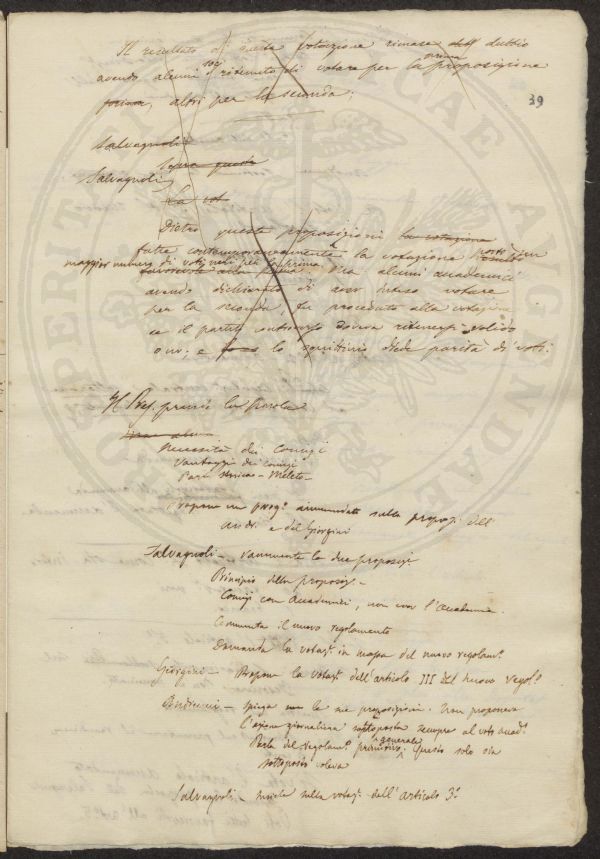 Il resultato di questa votazione rimase dubbio
39
avendo alcuni soci ritenuto di votare per la prima proposizione
altri per la seconda;
Salvagnoli
Sopra questa
Salvagnoli
La vot
Dietro queste proposizioni la votazione
fatta contemporaneamente la votazione
maggior numero di voti per la prima. Ma alcuni accademici
avendo dichiarato di aver inteso votare
per la seconda, fu proceduto alla votazione
se il partito dovea ritenersi valido
o no; e lo squittinio diede parità di voti.
Il Pres. prende la parola
Necessità dei Comizi
Vantaggi dei comizi
Meleto
Propone un progº annunziato sulla propozi dell'
Andr. e del Giorgini
Salvagnoli — rammenta le due proposizi
Principio della proposiz. —
Comizi con Accademici, non con l'Accademia
il nuovo regolamento
Domanda la votazº in massa del nuovo regolamº
Giorgini — Propone la votazº dell'articolo III del nuovo regolº
Andreucci — Spiega le sue proposizioni. Non proponeva
l'azione giornaliera sottoposta sempre al voto accadº
Parla del regolamº primitivo generale. Questo solo
sottoposto voleva
Salvagnoli — insiste sulla votazº dell'articolo 3º